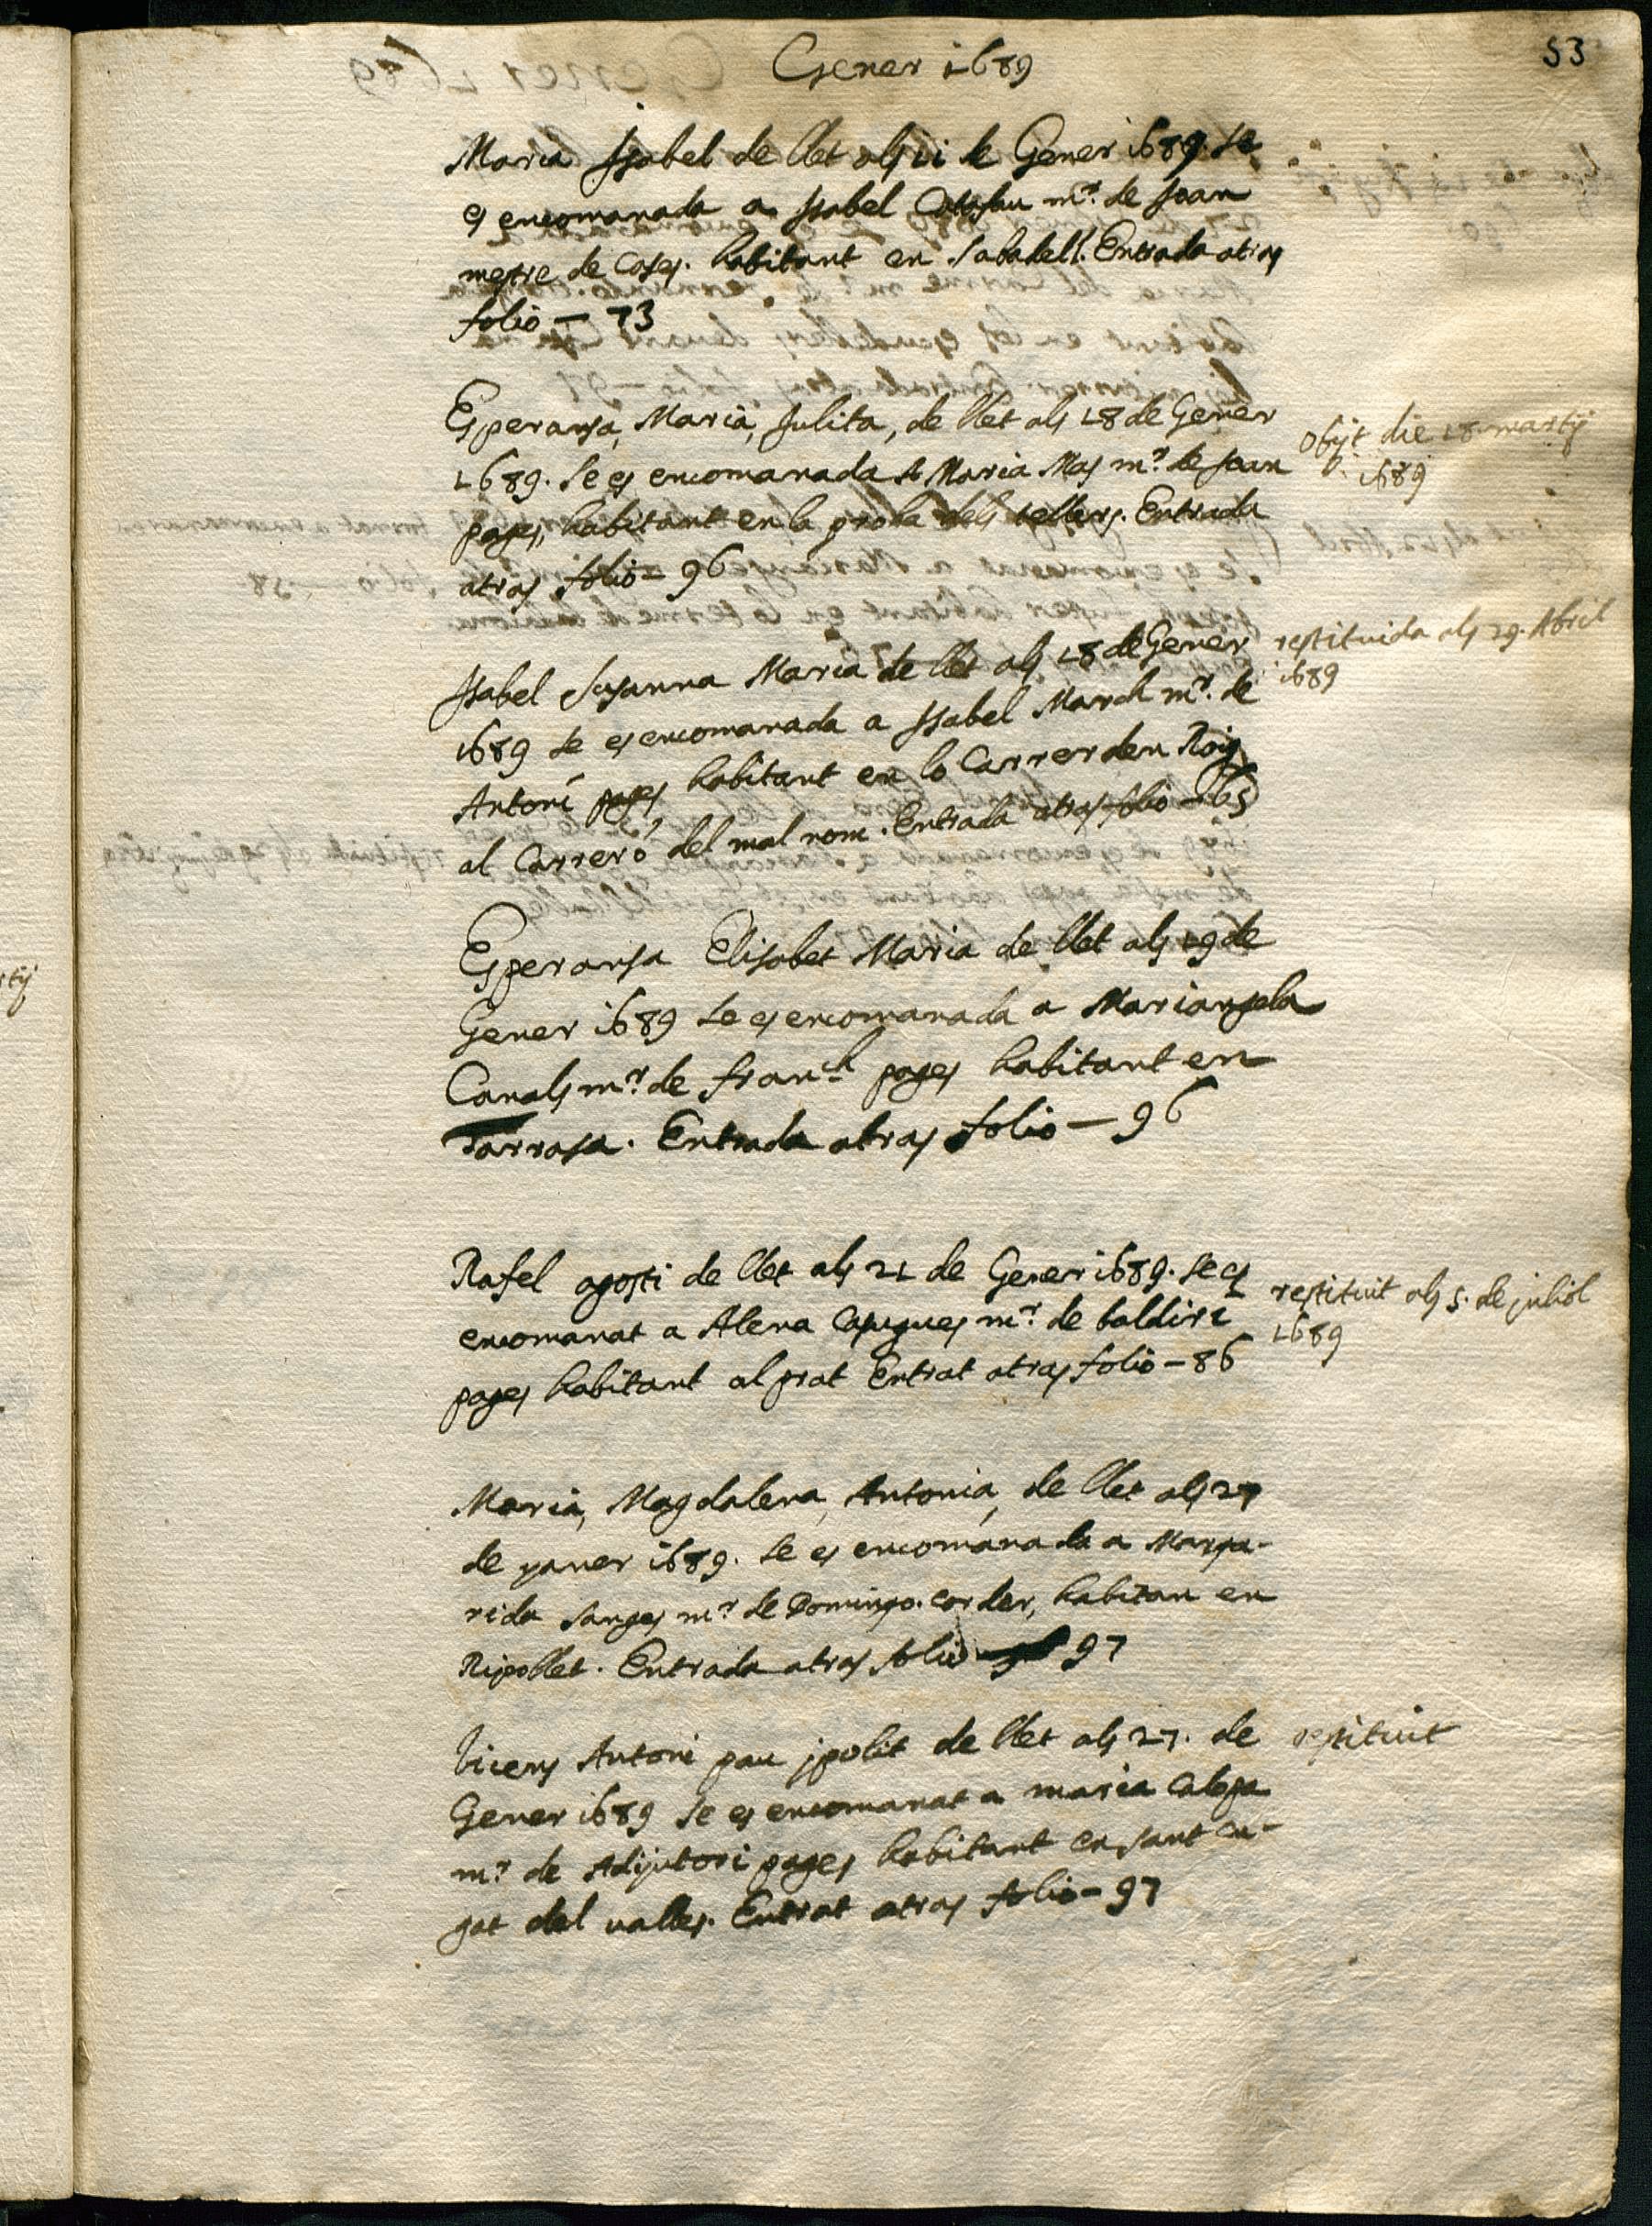 Gener 1689
53
Maria Isabel de llet als 11 de Gener 1689. se
es encomanada a Isabel Catasau mr. de Joan
mestre de cases. habitant en Sabadell. Entrada atras
folio - 73
Esperansa, Maria, Julita, de llet als 18 de Gener
1689. se es encomanada a Maria Mas mr. de Joan
pages, habitant en la proba dels tellers. Entrada
atras folio - 96
Obijt die 18 martij
1689
Isabel Susanna Maria de llet als 18 de Gener
1689 se es encomanada a Isabel March mr. de
Antoni pages habitant en lo Carrer den Roig
al Carreró del mal nom. Entrada atras folio - 65
restituida als 29. Abril
1689
Esperansa Elisabet Maria de llet als 19 de
Gener 1689 se es encomanada a Mariangela
Canals mr. de franch pages habitant en
Tarrasa. Entrada atras folio - 96
Rafel agosti de llet als 21 de Gener 1689. se es
encomanat a Alena mr. de baldiri
pages habitant al prat Entrat atras folio - 86
restituit als 5. de juliol
1689
Maria, Magdalena, Antonia, de llet als 27
de yaner 1689. se es encomanada a Marga-
rida Sanges mr. de Domingo. corder, habitan en
Ripollet. Entrada atras folio 97
Vicens Antoni pau jpolit de llet als 27. de
Gener 1689 se es encomanat a maria
mr. de Adjutori pages habitant en sant cu-
gat del valles. Entrat atras folio - 97
restituit